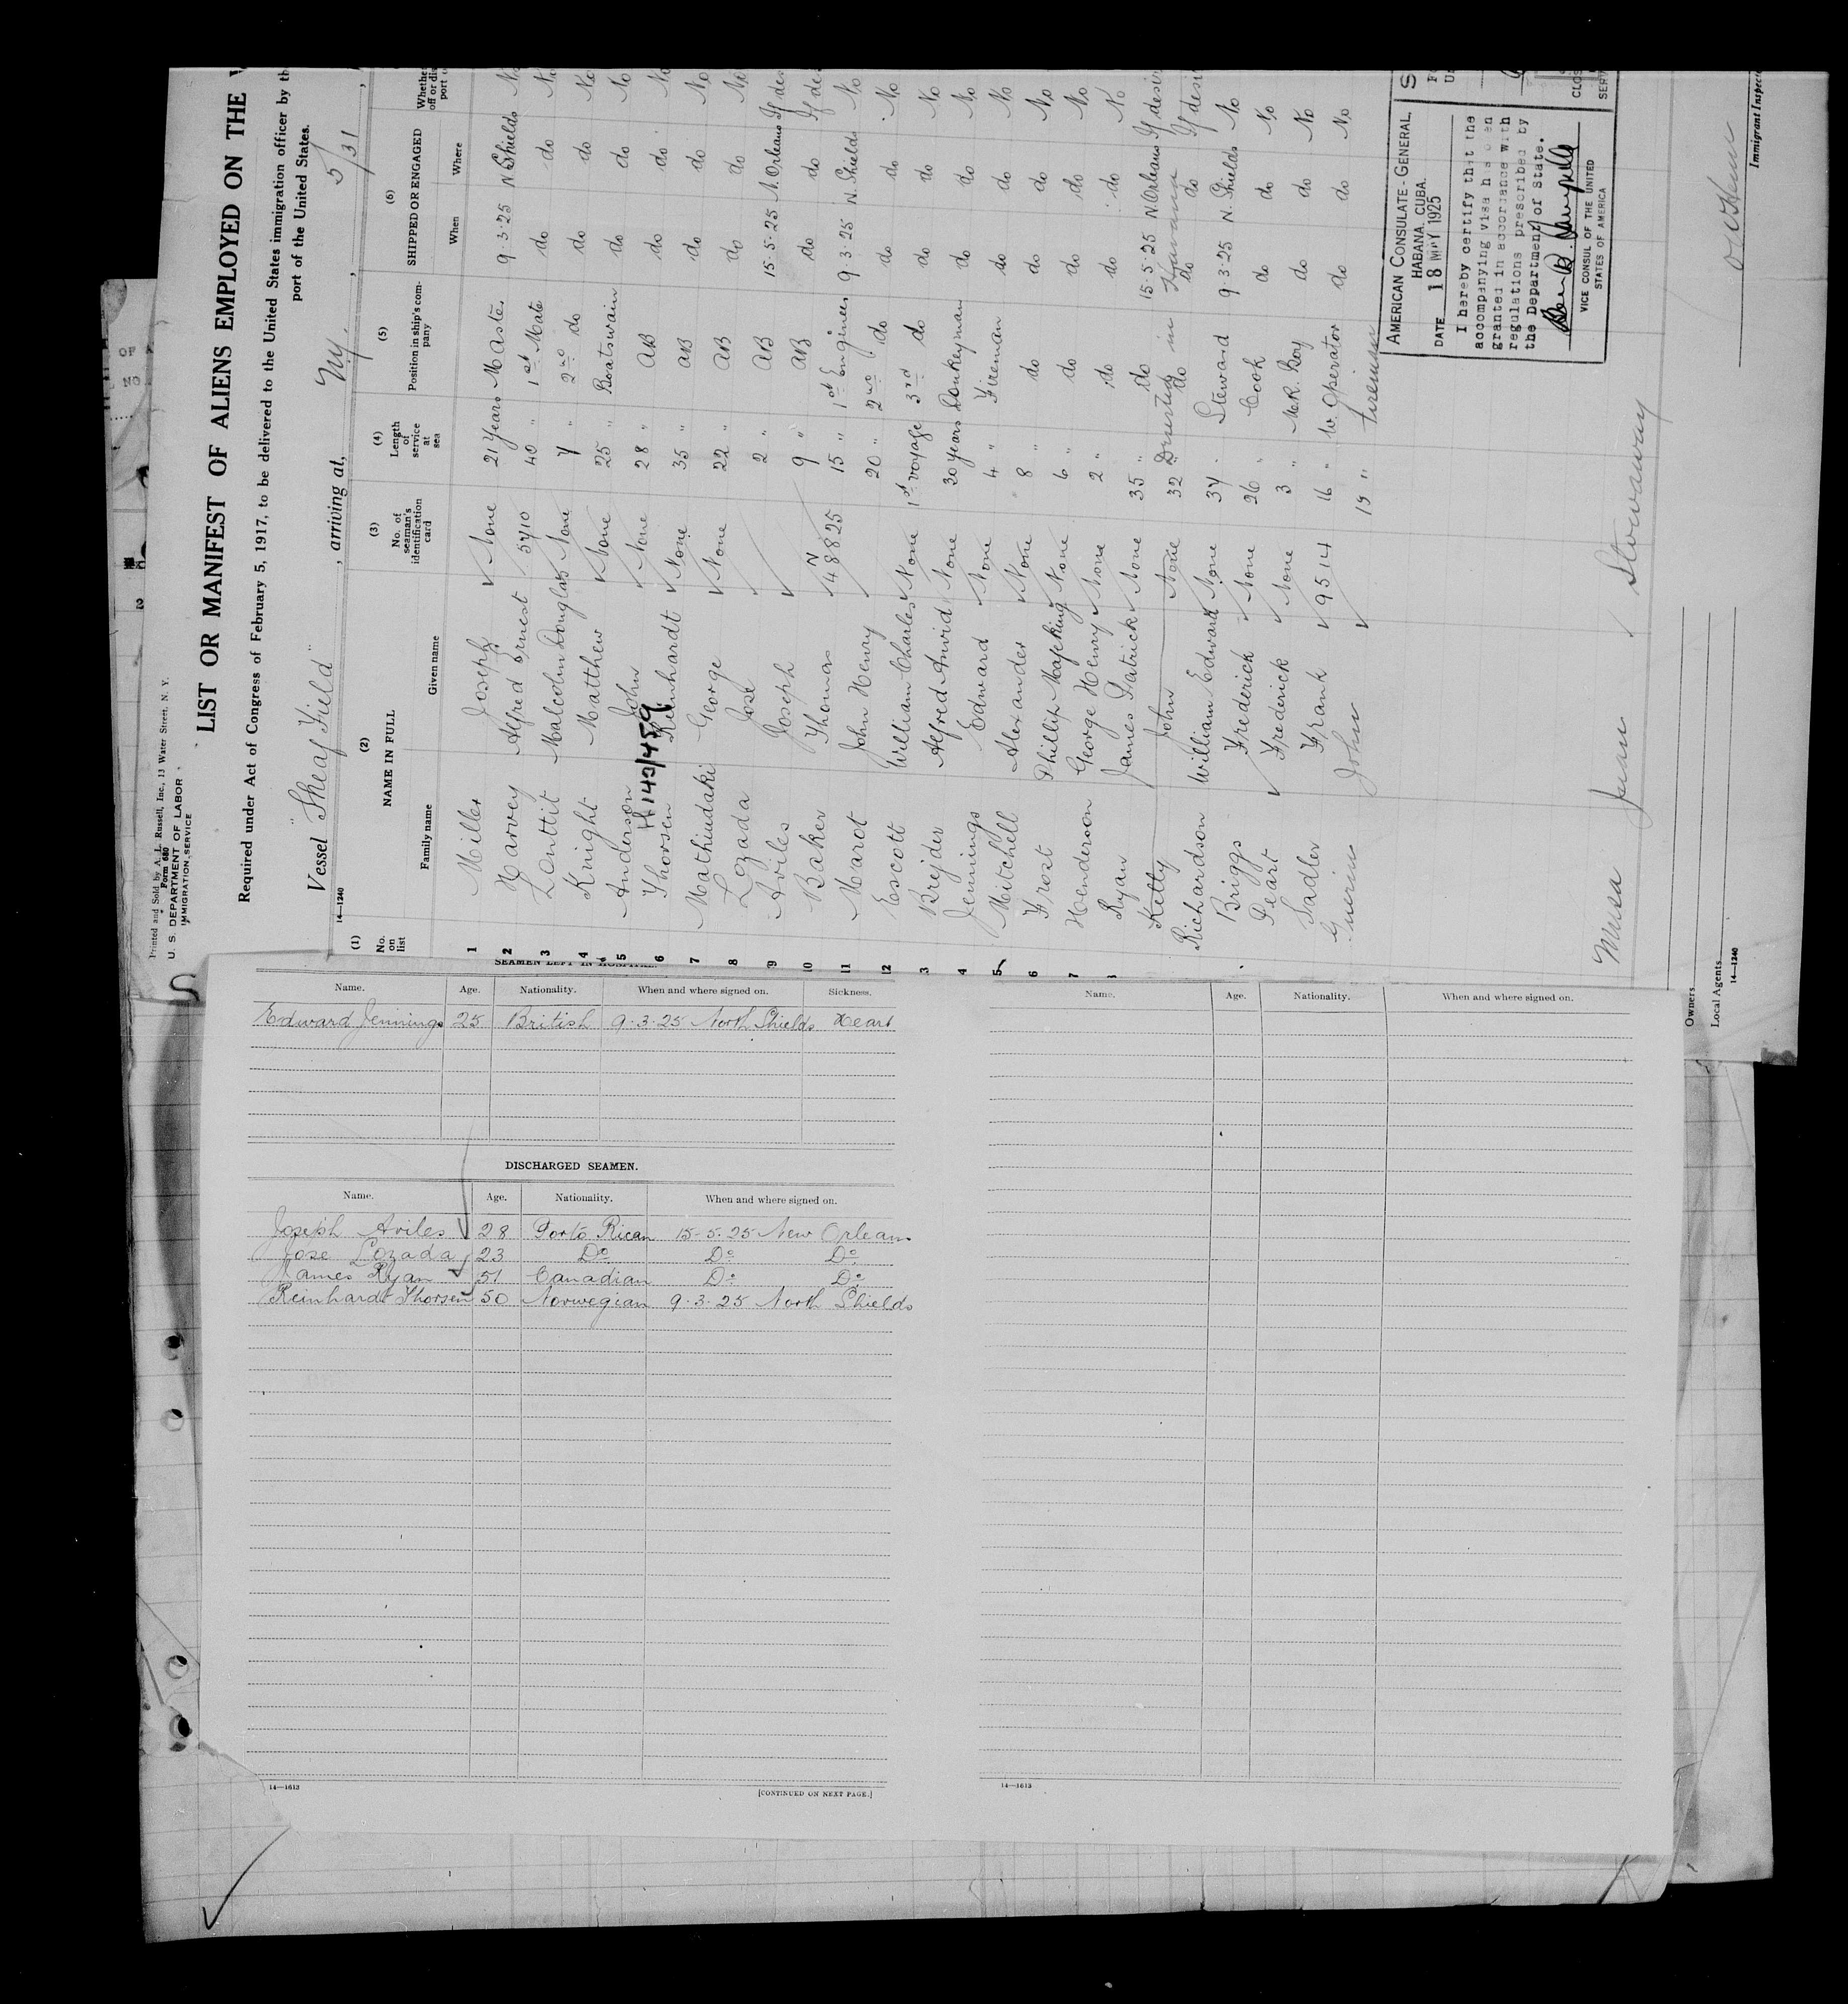 Printed and Sold by A. L. Russell, Inc., 13 Water Street, N. Y.
Form 680
U. S. DEPARTMENT OF LABOR
IMMIGRATION SERVICE
LIST OR MANIFEST OF ALIENS EMPLOYED ON THE
Required under Act of Congress of February 5, 1917, to be delivered to the United States immigration officer by th
port of the United States.
Vessel "Sheaf Field", arriving at, Ny, 5/31
14—1240
(1) (2) (3) (4) (5) (6)
No. on list NAME IN FULL Family name Given name No. of seaman's identification card Length of service at sea Position in ship's company SHIPPED OR ENGAGED When Where Whethe off or dis port o
1 Miller Joseph None 21 Years Master 9.3.25 N Shields No
2 Harvey Alfred Ernest 5710 40 " 1st Mate do do No
3 Malcolm Douglas None 7 " 2nd do do do No
4 Knight Matthew None 25 " Boatswain do do No
5 Anderson John None 28 " AB do do No
H 143/459
6 Thorsen Reinhardt None 35 " AB do do No
7 Mathiudaki George None 22 " AB do do No
8 Lozada Jose 2 " AB 15.5.25 N. Orleans If des
9 Aviles Joseph 9 " AB do do If des
10 Baker Thomas 48825 15 " 1st Engineer 9 3.25 N. Shields No
11 Marot John Henry 20 " 2nd do do do No
12 Escott William Charles None 1st voyage 3rd do do do No
3 Brejder Alfred Anvid None 30 years Donkeyman do do No
4 Jennings Edward None 4 " Fireman do do No
5 Mitchell Alexander None 8 " do do do No
6 Frost Phillip Mafeking None 6 " do do do No
7 Henderson George Henry None 2 " do do do No
Ryan James Patrick None 35 " do 15.5.25 N. Orleans If desir
Kelly John None 32 " do do do If desi
Deserted in Havana
Richardson William Edward None 37 " Steward 9 3.25 N. Shields No
Briggs Frederick None 26 " Cook do do No
Peart Frederick None 3 " M.R. Boy do do No
Sadler Frank 9514 16 " W. Operator do do No
Guerin John 19 " fireman
AMERICAN CONSULATE-GENERAL,
HABANA, CUBA.
DATE 18 MAY 1925
I hereby certify that the
accompanying visa has been
granted in accordance with
regulations prescribed by
the Department of State.
VICE CONSUL OF THE UNITED
STATES OF AMERICA
Musa Juan Stowaway
Owners
Local Agents
14—1240
Immigrant Inspec
SEAMEN LEFT IN HOSPITAL.
Name. Age. Nationality. When and where signed on. Sickness.
Edward Jennings 25 British 9.3.25 North Shields Heart
DISCHARGED SEAMEN.
Name. Age. Nationality. When and where signed on.
Joseph Aviles 28 Porto Rican 15-5.25 New Orleans
Jose Lozada 23 Do Do Do
James Ryan 51 Canadian Do Do
Reinhardt Thorsen 50 Norwegian 9.3.25 North Shields
14—1613
[CONTINUED ON NEXT PAGE.]
Name. Age. Nationality. When and where signed on.
14—1613